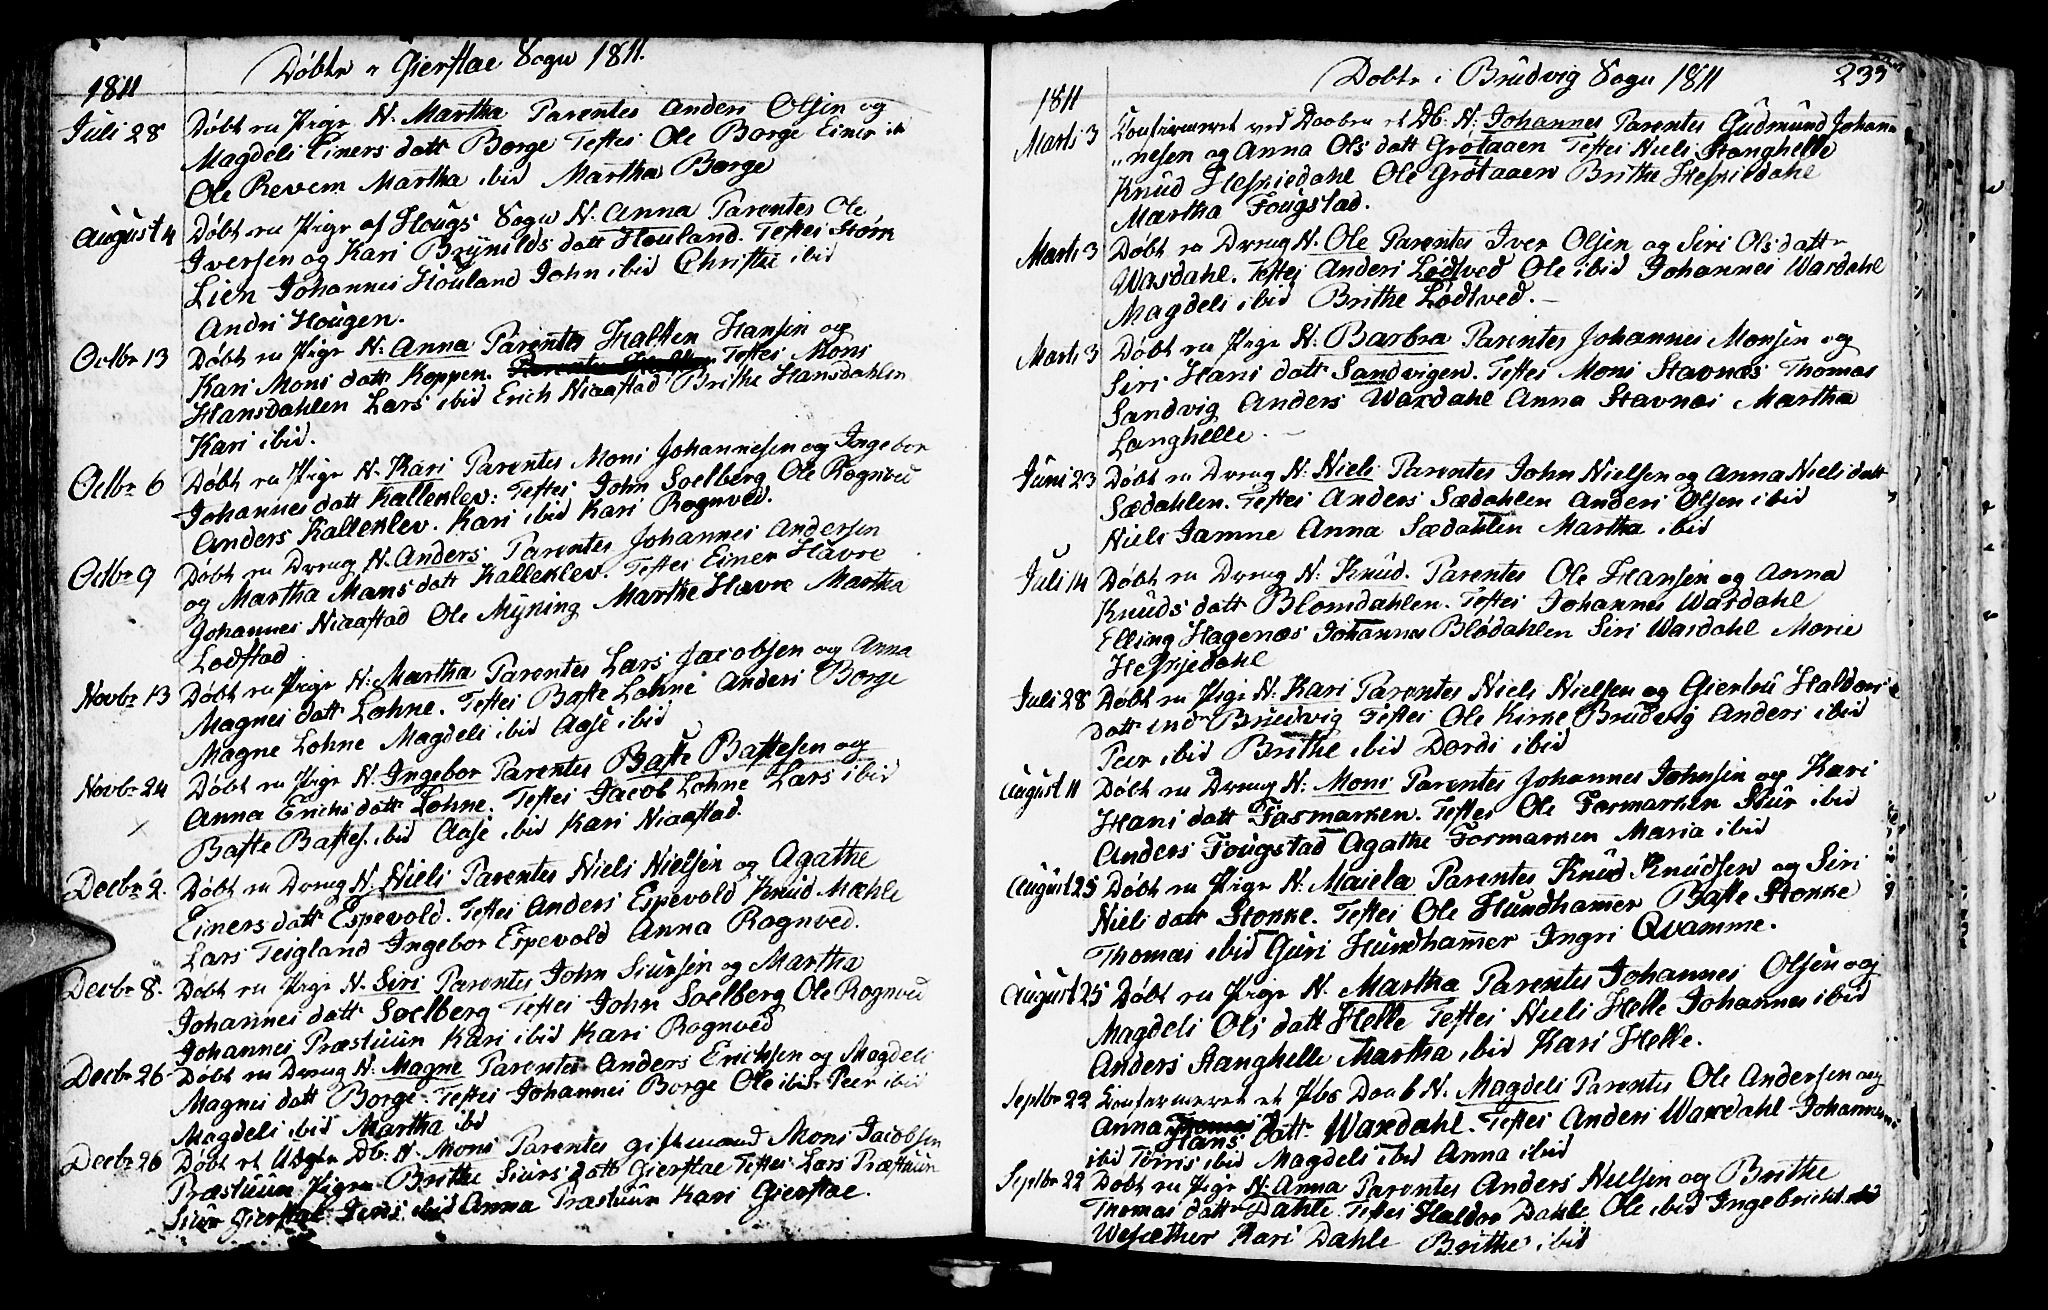 Døbte i Gierstae Sogn 1811.
1811
Juli 28 Døbt en Pige N. Martha Parentes Anders Olsen og
Magdeli Einers datt Borge Testes Ole Borge Einer ib
Ole Revem Martha ibid Martha Borge
August 4 Døbt en Pige af Hougs Sogn N. Anna Parentes Ole
Iversen og Kari Brÿnilds datt Houland. Testes Størk
Lien Johannes Houland John ibid Christi ibid
Andri Hougen.
Octbr 13 Døbt en Pige N: Anna Parentes Halsten Hansen og
Kari Mons datt Koppen. Testes Mons
Hansdahlen Lars ibid Erich Niaastad Brithe Hansdahlen
Kari ibid.
Octbr 6 Døbt en Pige N. Kari Parentes Mons Johannesen og Ingebor
Johannes datt Kalleklev: Testes John Soelberg Ole Rognved
Anders Kalleklev. Kari ibid Kari Rognved.
Octbr 9 Døbt en Dreng N. Anders Parentes Johannes Andersen
og Martha Mons datt Kalleklev. Testes Einer Havre
Johannes Niaastad Ole Mÿking Marthe Havre Martha
Lodstad
Novbr 13 Døbt en Pige N: Martha Parentes Lars Jacobsen og Anna
Magnes datt Lohne. Testes Baste Lohne Anders Borge
Magne Lohne Magdeli ibid Aase ibid
Novbr 24 Døbt en Pige N. Ingebor Parentes Baste Bastesen og
Anna Erichs datt Lohne. Testes Jacob Lohne Lars ibid
Baste Bastes. ibid Aase ibid Kari Niaastad.
Decbr 2. Døbt en Dreng N. Niels Parentes Niels Nielsen og Agathe
Einers datt Espevold. Testes Anders Espevold Knud Mæhle
Lars Teigland Ingebor Espevold Anna Rognved.
Decbr 8. Døbt en Pige N. Siri Parentes John Siursen og Martha
Johannes datt Soelberg Testes John Soelberg Ole Rognved
Johannes Præstuun Kari ibid Kari Rognved
Decbr 26 Døbt en Dreng N: Magne Parentes Anders Erichsen og Magdeli
Magnes datt Borge. Testes Johannes Borge Ole ibid Peer ibid
Magdeli ibid Martha ibd
Decbr 26 Døbt et Uægte Db: N. Mons Parentes gift mand Mons Jacobsen
Præstuun Pigen Brithe Siurs datt Gierstae Testes Lars Præstuun
Siur Gierstae ibid Anna Præstuun Kari Gierstae.
Døbte i Brudvig Sogn 1811
233
1811
Marts 3 Confirmeret ved Daaben et Db: N: Johannes Parentes Gudmund Johan
"nesen og Anna Ols datt Grøtaaen Testes Niels Stanghelle
Knud Hesjedahl Ole Grøtaaen Brithe Hesjedahl
Martha Fougstad.
Marts 3 Døbt en Dreng N. Ole Parentes Iver Olsen og Siri Ols datt
Wasdahl. Testes Anders Lødtved Ole ibid Johannes Wardahl
Magdeli ibid Brithe Lødtved.
Marts 3 Døbt en Pige N: Barbra Parentes Johannes Monsen og
Siri Hans datt Sandvigen. Testes Mons Stavnæs Thomas
Sandvig Anders Waxdahl Anna Stavnæs Martha
Langhelle.
Juni 23 Døbt en Dreng N: Niels Parentes John Nielsen og Anna Niels datt
Sædahlen. Testes Anders Sædahlen Anders Olsen ibid
Niels Jamne Anna Sædahlen Martha ibid
Juli 14 Døbt en Dreng N: Knud. Parentes Ole Hansen og Anna
Knuds datt Blomdahlen. Testes Johannes Wasdahl
Elling Hagenæs Johannes Blødahlen Siri Wardahl Marie
Hesjedahl
Juli 28 Døbt en Pige N: Kari Parentes Niels Nielsen og Giertru Haldors
datt indr Bruvig Testes Ole Kirke Brudvig Anders ibid
Peer ibid Brithe ibid Dordi ibid
August 11 Døbt en Dreng N: Mons Parentes Johannes Johnsen og Kari
Hans datt Fosmarken. Testes Ole Fosmarken Siur ibid
Anders Fougstad Agathe Formarken Maria ibid
August 25 Døbt en Pige N: Maiela Parentes Knud Knudsen og Siri
Niels datt Stokke. Testes Ole Hundhamer Baste Stokke
Thomas ibid Guri Hundhamer Ingri Qvamme.
August 25 Døbt en Pige N. Martha Parentes Johannes Olsen og
Magdeli Ols datt Helle Testes Niels Helle Johannes ibid
Anders Stanghelle Martha ibid Kari Helle.
Septbr 22 Confirmeret et Pbs Daab N. Magdeli Parentes Ole Andersen og
Anna Hans datt Waxdahl. Testes Anders Waxdahl Johannes
ibid Tørris ibid Magdeli ibid Anna ibid
Septbr 22 Døbt en Pige N. Anna Parentes Anders Nielsen og Brithe
Thomas datt Dahle Testes Haldor Dahle Ole ibid Ingebricht ibid
Wesæther Kari Dahle Brithe ibid